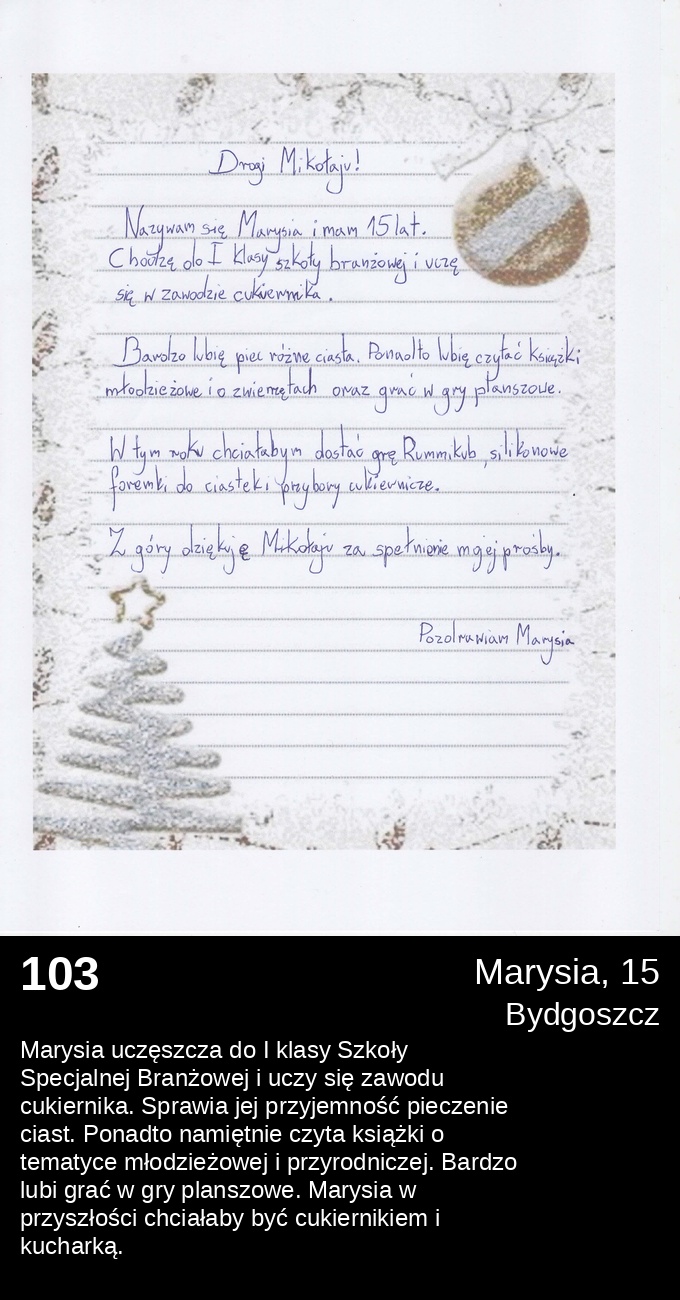 Drogi Mikołaju!
Nazywam się Marysia i mam 15 lat.
Chodzę do I klasy szkoły branżowej i uczę
się w zawodzie cukiernika.
Bardzo lubię piec różne ciasta. Ponadto lubię czytać książki
młodzieżowe i o zwierzętach oraz grać w gry planszowe.
W tym roku chciałabym dostać grę Rummikub, silikonowe
foremki do ciastek i przybory cukiernicze.
Z góry dziękuję Mikołaju za spełnienie mojej prośby.
Pozdrawiam Marysia
103
Marysia, 15
Bydgoszcz
Marysia uczęszcza do I klasy Szkoły
Specjalnej Branżowej i uczy się zawodu
cukiernika. Sprawia jej przyjemność pieczenie
ciast. Ponadto namiętnie czyta książki o
tematyce młodzieżowej i przyrodniczej. Bardzo
lubi grać w gry planszowe. Marysia w
przyszłości chciałaby być cukiernikiem i
kucharką.